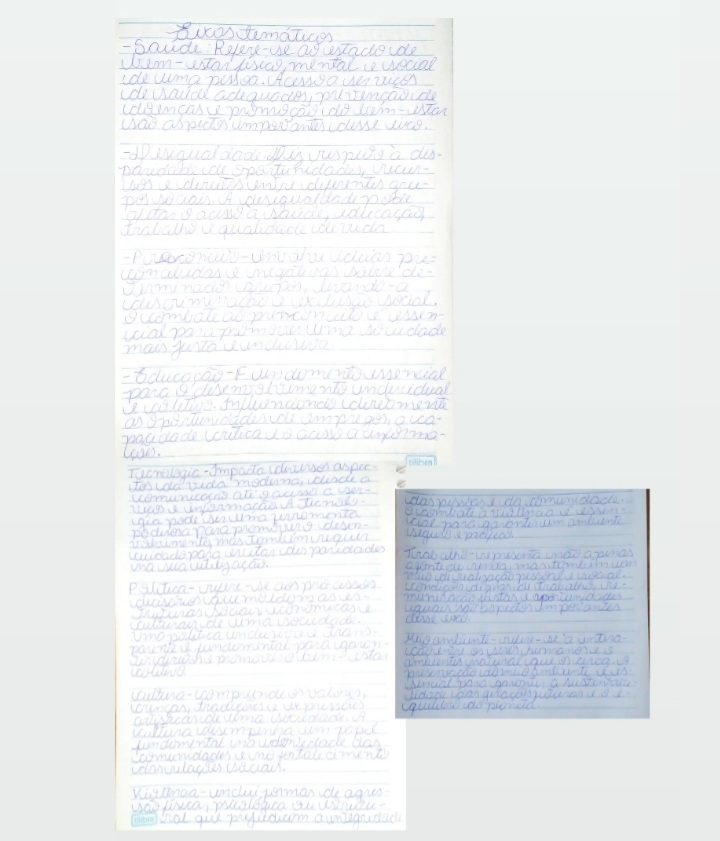 Eixos temáticos
-Saúde: Refere-se ao estado de
bem-estar físico, mental e social
de uma pessoa. Acesso a serviços
de saúde adequados, prevenção de
doenças e promoção do bem-estar
são aspectos importantes desse eixo.
-Desigualdade diz respeito à dis-
paridade de oportunidades, recur-
sos e direitos entre diferentes gru-
pos sociais. A desigualdade pode
afetar o acesso à saúde, educação,
trabalho e qualidade de vida.
-Preconceito-envolve ideias pré-
concebidas e negativas sobre de-
terminados grupos, levando a
discriminação e exclusão social.
O combate ao preconceito é essen-
cial para promover uma sociedade
mais justa e inclusiva.
-Educação-Fundamento essencial
para o desenvolvimento individual
e coletivo. Influenciando diretamente
as oportunidades de empregos, a ca-
pacidade crítica e o acesso a informa-
ções.
Tecnologia-Impacta diversos aspec-
tos da vida moderna, desde a
comunicação até o acesso a ser-
viços e informação. A tecnolo-
gia pode ser uma ferramenta
poderosa para promover o desen-
volvimento mas também requer
cuidado para evitar disparidades
na sua utilização.
Política-refere-se aos processos
decisórios que moldam as es-
truturas sociais econômicas e
culturais de uma sociedade.
Uma política inclusiva e trans-
parente é fundamental para garan-
tir direitos e promover o bem-estar
coletivo.
Cultura-compreende os valores,
crenças, tradições e expressões
artísticas de uma sociedade. A
cultura desempenha um papel
fundamental na identidade das
comunidades e no fortalecimento
das relações sociais.
Violência-inclui formas de agres-
são física, psicológica ou estrutu-
ral que prejudicam a integridade
das pessoas e da comunidade.
O combate à violência é essen-
cial para garantir um ambiente
seguro e
Trabalho-representa não apenas
a fonte de renda, mas também um
meio de realização pessoal e social.
condições dignas de trabalho, re-
muneração justas e oportunidades
iguais são aspectos importantes
desse eixo.
Meio ambiente-refere-se à intera-
ção entre os seres humanos e o
ambiente natural que os cerca. A
preservação do meio ambiente é es-
sencial para garantir a sustentabi-
lidade das gerações futuras e o e-
quilíbrio do planeta.